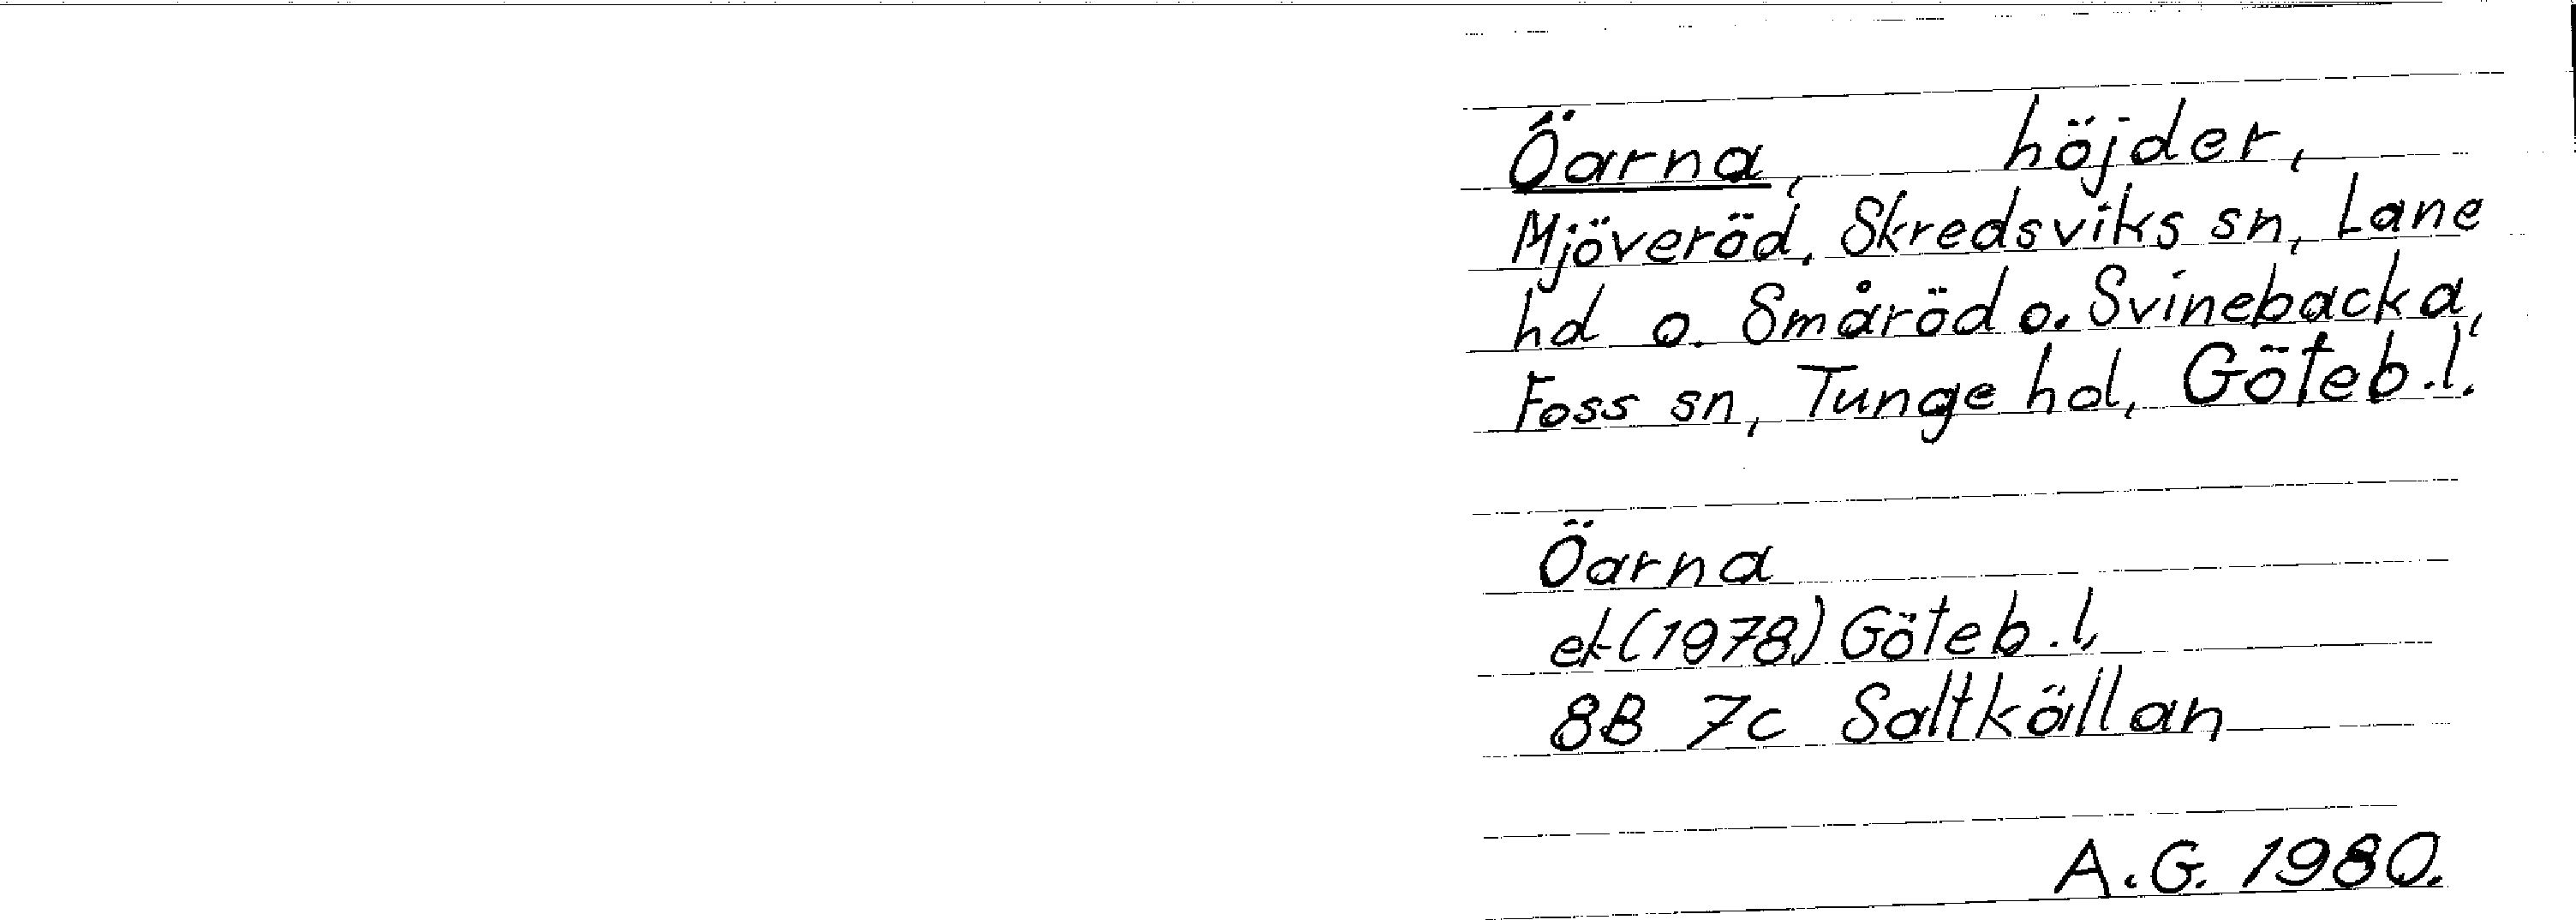 Öarna, höjder,
Mjöveröd, Skredsviks sn, Lane
hd o. Småröd o. Svinebacka,
Foss sn, Tunge hd, Göteb.l.
Öarna
ek(1978) Göteb.l,
8B 7c Saltkällan
A.G. 1980.